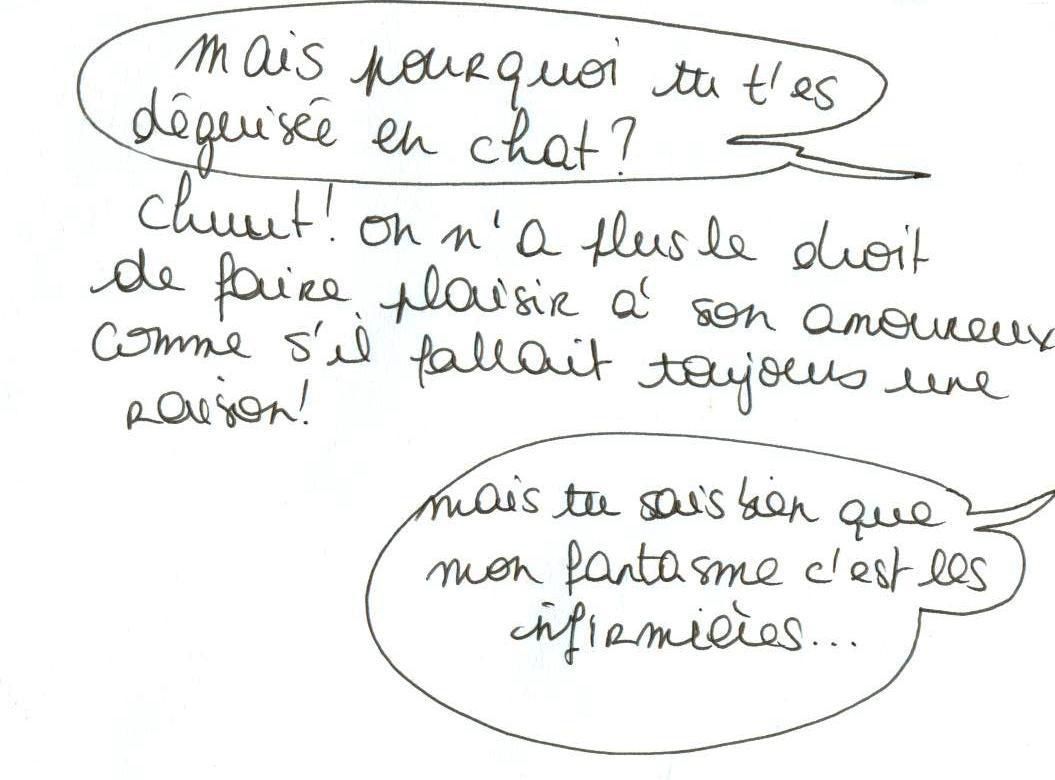 mais pourquoi tu t'es
déguisée en chat ?
chuut ! on n'a plus le droit
de faire plaisir à son amoureux
comme s'il fallait toujours une
raison !
mais tu sais bien que
mon fantasme c'est les
infirmières...